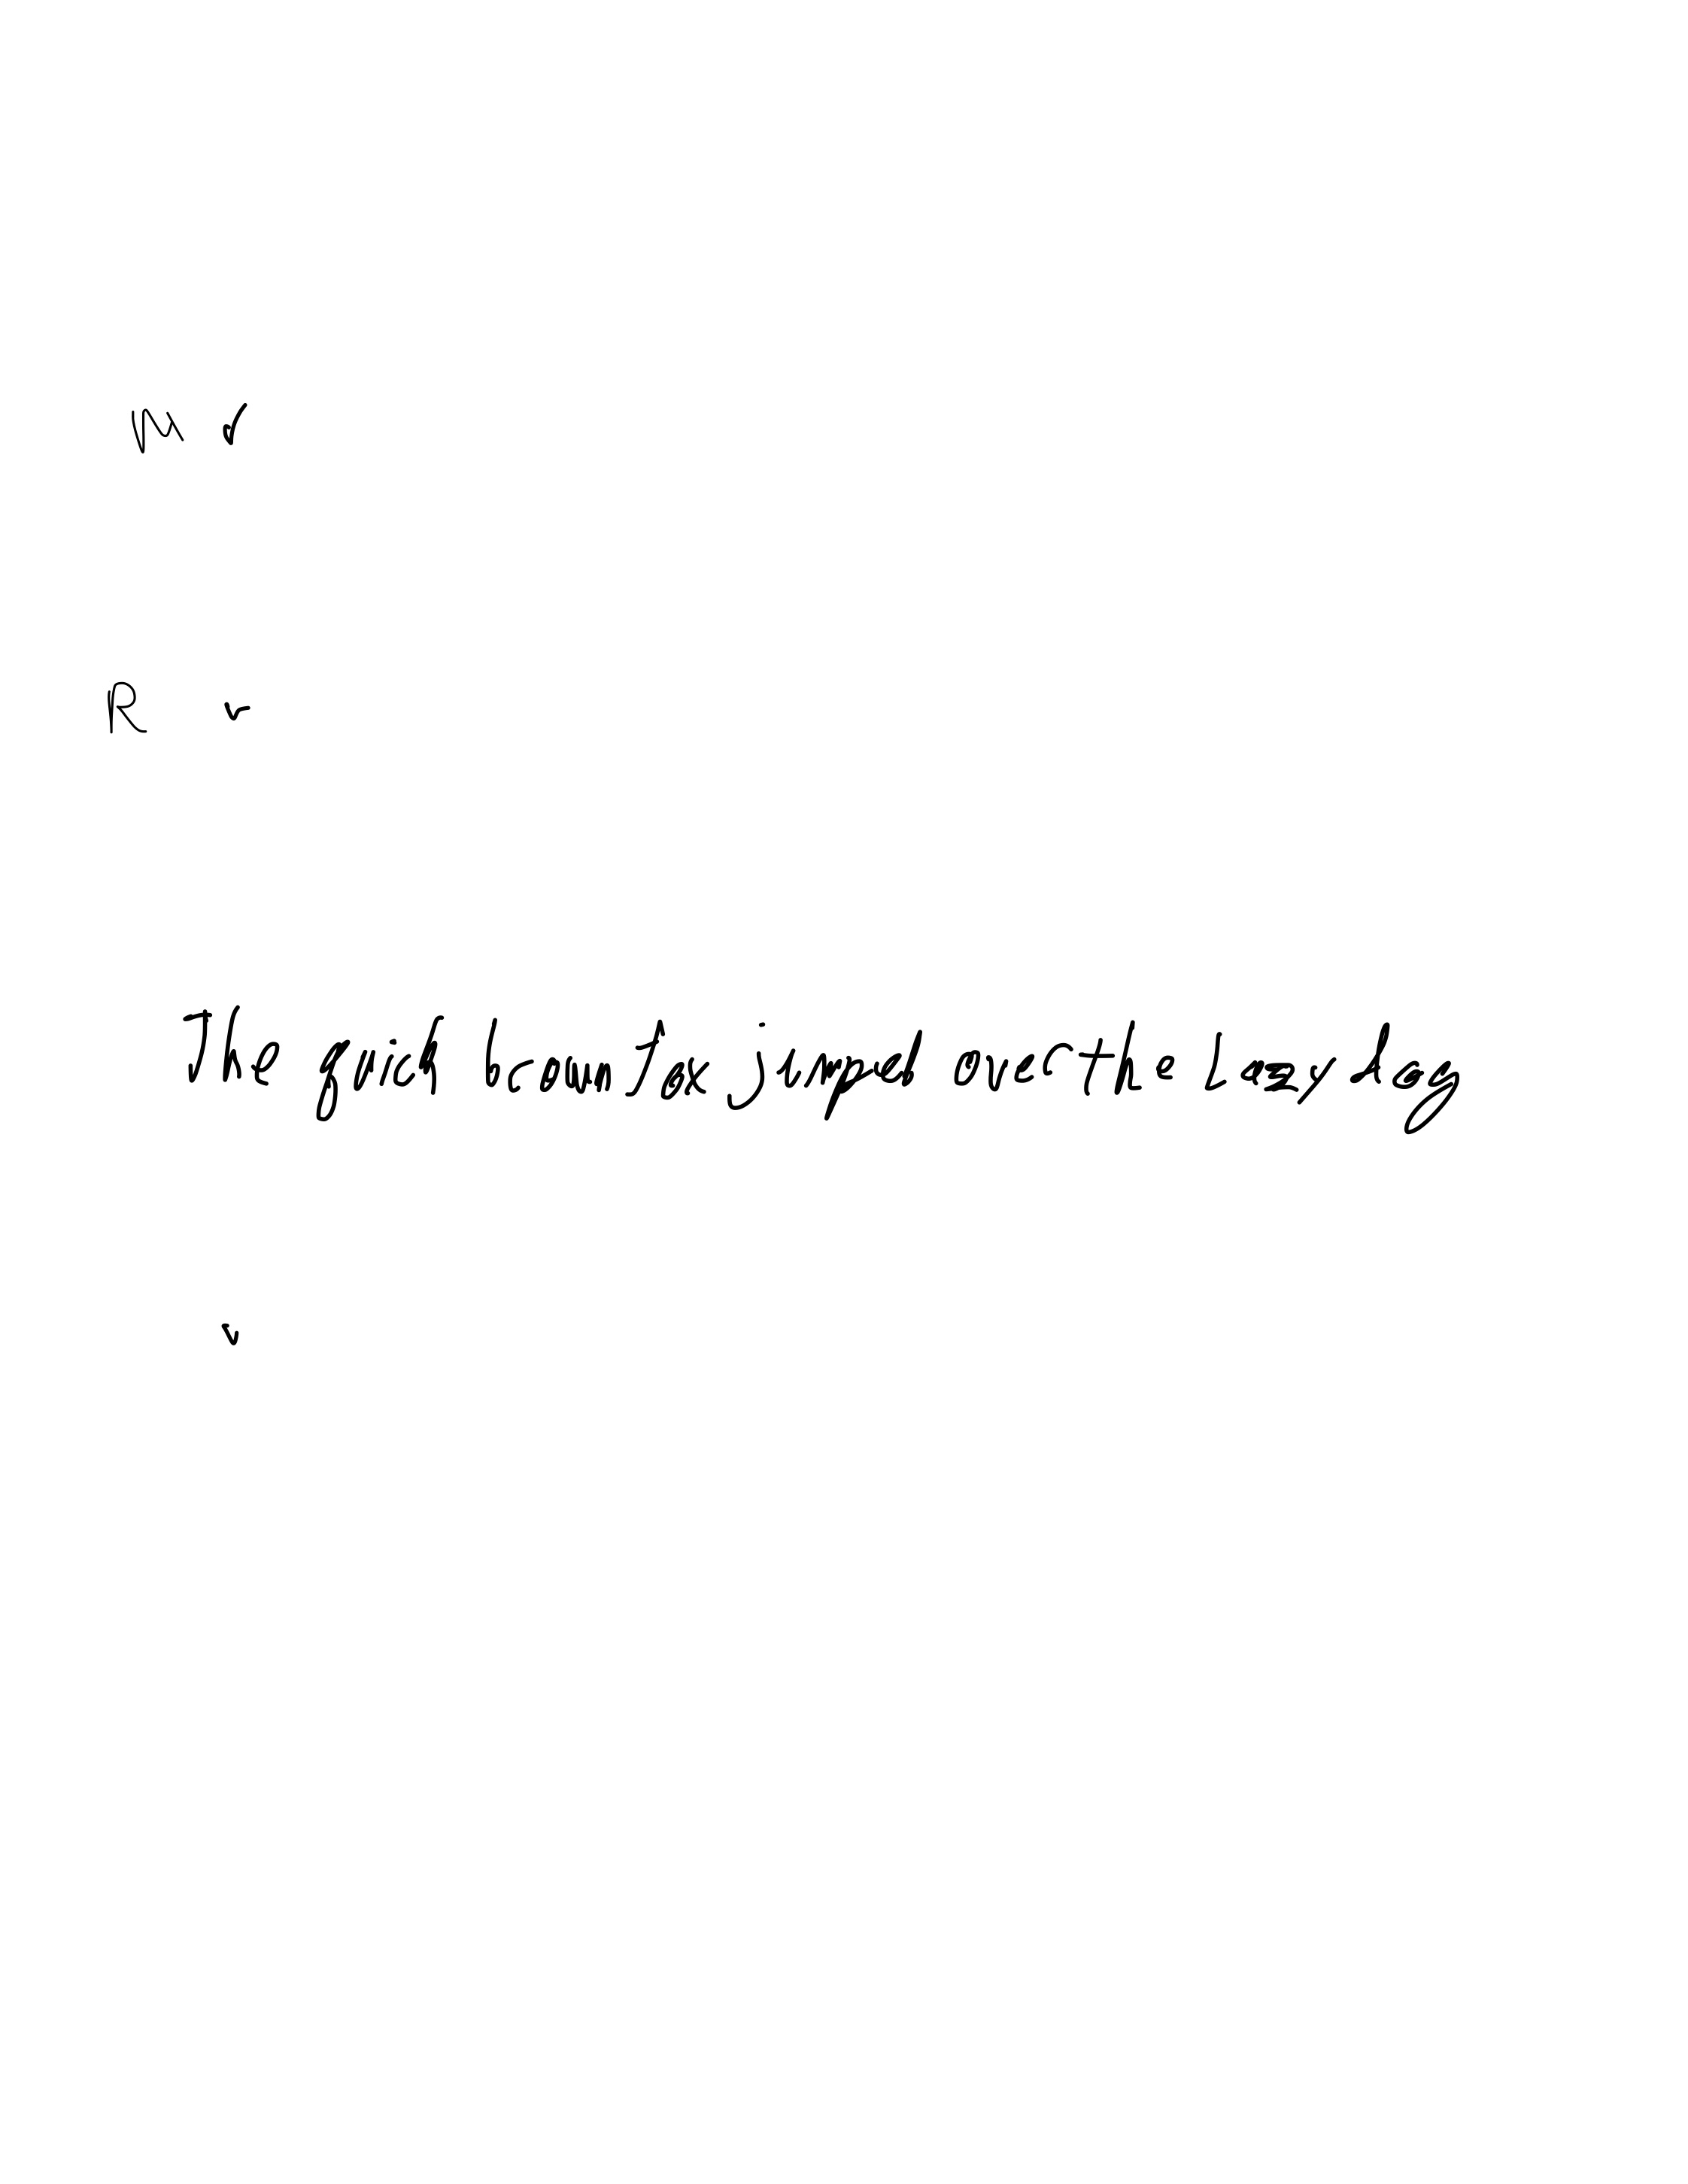 M ✓
R ✓
The quick brown fox jumped over the Lazy dog
✓